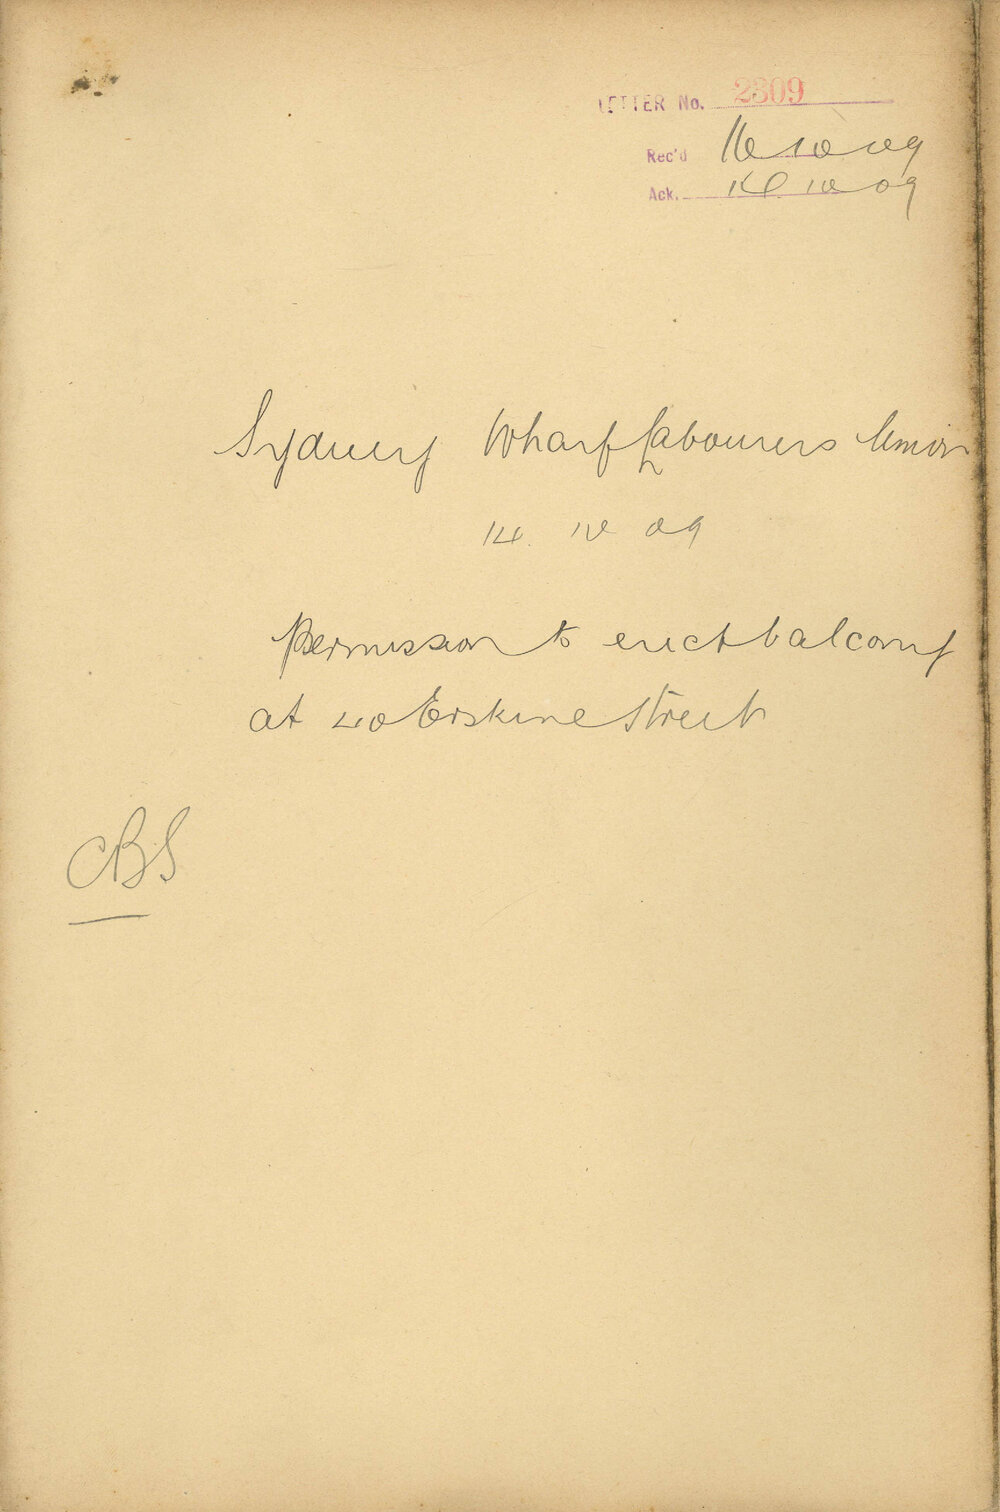 LETTER No. 2309
Rec'd 16 10 09
Ack. 10 09
Sydney Wharf Labourers Union
14. 10 09
Permission to erect balcony
at 40 Erskine Street
CBS